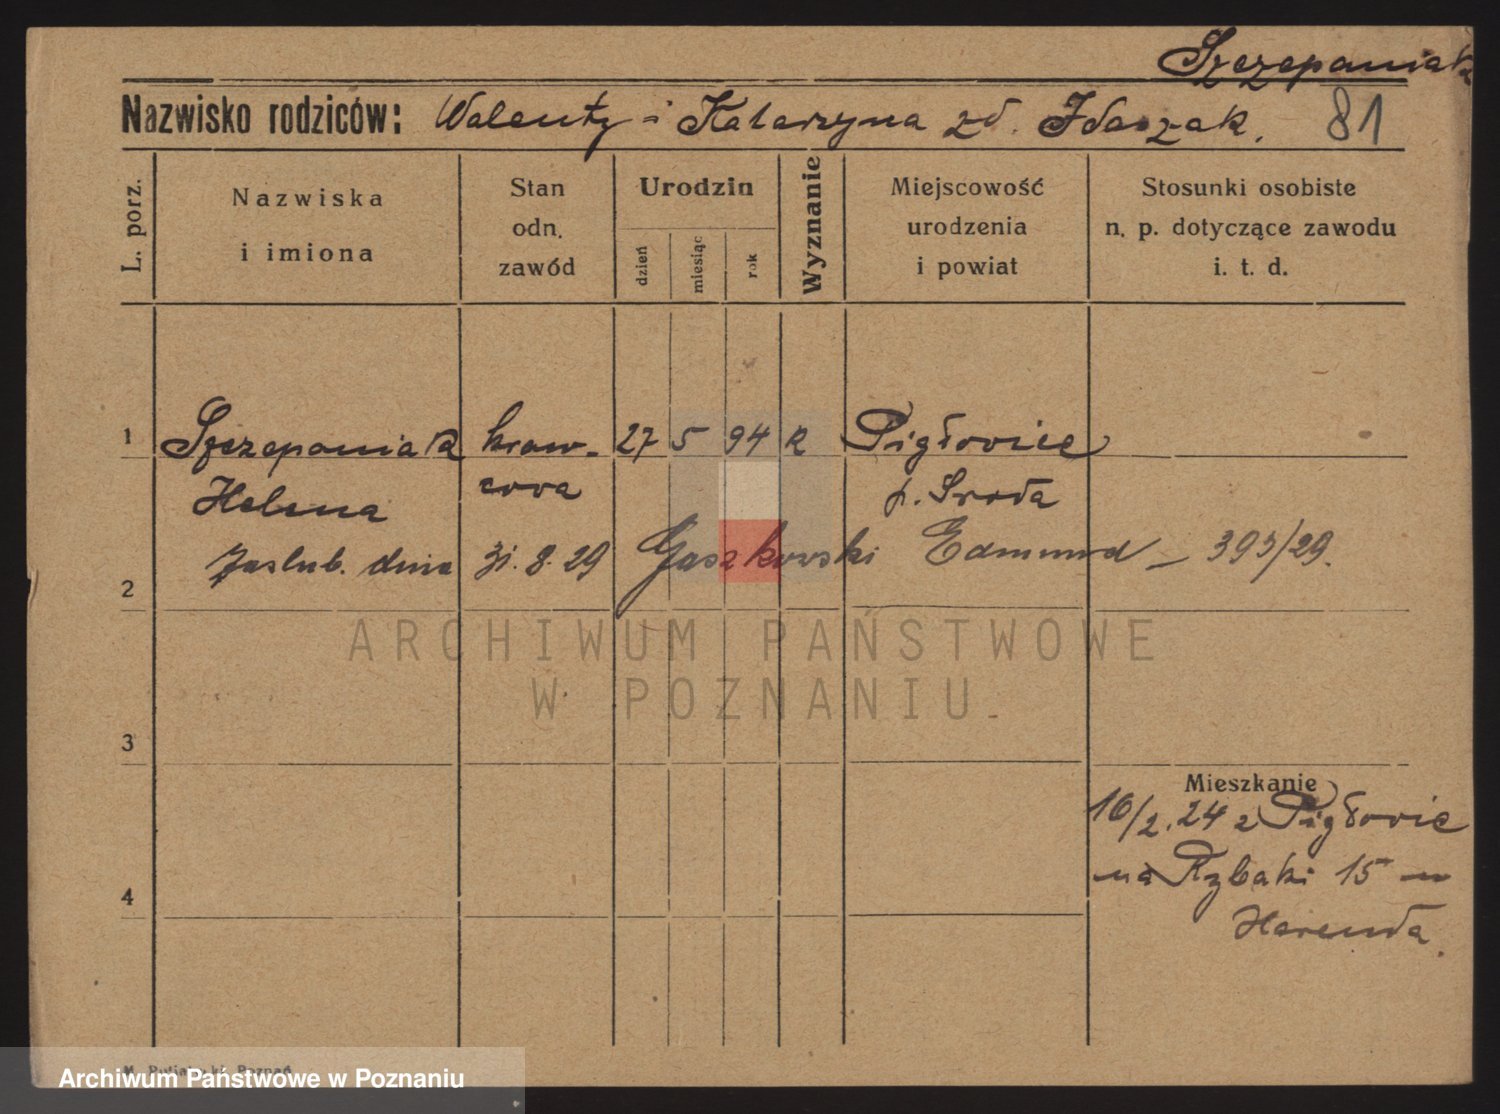 Szczepaniak
Nazwisko rodziców: Walenty i Katarzyna zd. Idaszak.
81
L. porz.
Nazwiska
i imiona
Stan
odn.
zawód
Urodzin
dzień
miesiąc
rok
Wyznanie
Miejscowość
urodzenia
i powiat
Stosunki osobiste
n. p. dotyczące zawodu
i. t. d.
1 Szczepaniak kraw- 27 5 94 k Pigłovice
Helena cova p. Sroda
2 Zaslub. dnia 31. 8. 29 Gaszkowski Edmund – 393/29.
ARCHIWUM PAŃSTWOWE
W POZNANIU
3
Mieszkanie
16/2. 24 z Pigłovic
na Rybaki 15 u
4
Harenda.
Poznań
Archiwum Państwowe w Poznaniu